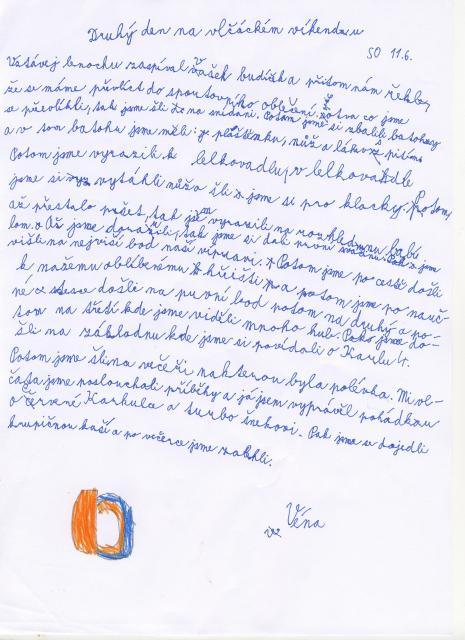 Druhý den na vlčáckém víkendu
SO 11.6.
Vstávej lenochu zaspíval Vašek budíčka a přitom nám řekl,
že se máme převlíct do sportovního oblečení. co jme
se převlíkli, tak jsme šli na snídani. Potom jsme si zbalili batohy
a v tom batohu jsme měli: pláštěnku, nůž a láhev s pitím
Potom jsme vyrazili k lelkovadlu, v lelkovadle
jsme si vytáhli nůž a šli jsme si pro klacky. Potom,
až přestalo pršet, tak jsme vyrazili na rozhlednu
lom. Až jsme dorazili, tak jsme si dali první svačinu. Pak jsme
viděli na nejviší bod naší výpravi. Potom jsme po cestě došli
k našemu oblíbenému hřišti a potom jsme po nauč-
né stesce došli na první bod potom na druhý a po-
tom na třetí kde jsme viděli mnoho hub. jsme do-
šli na základnu kde jsme si povídali o Karlu 4.
Potom jsme šli na večeři na kterou byla polévka. Mi vl-
čata jsme poslouchali příběhy a já jsem vyprávěl pohádkou
o červené Karkulce a turbo šnekovi. Pak jsme se dojedli
krupičnou kaší a po večerce jsme zalehli.
Véna